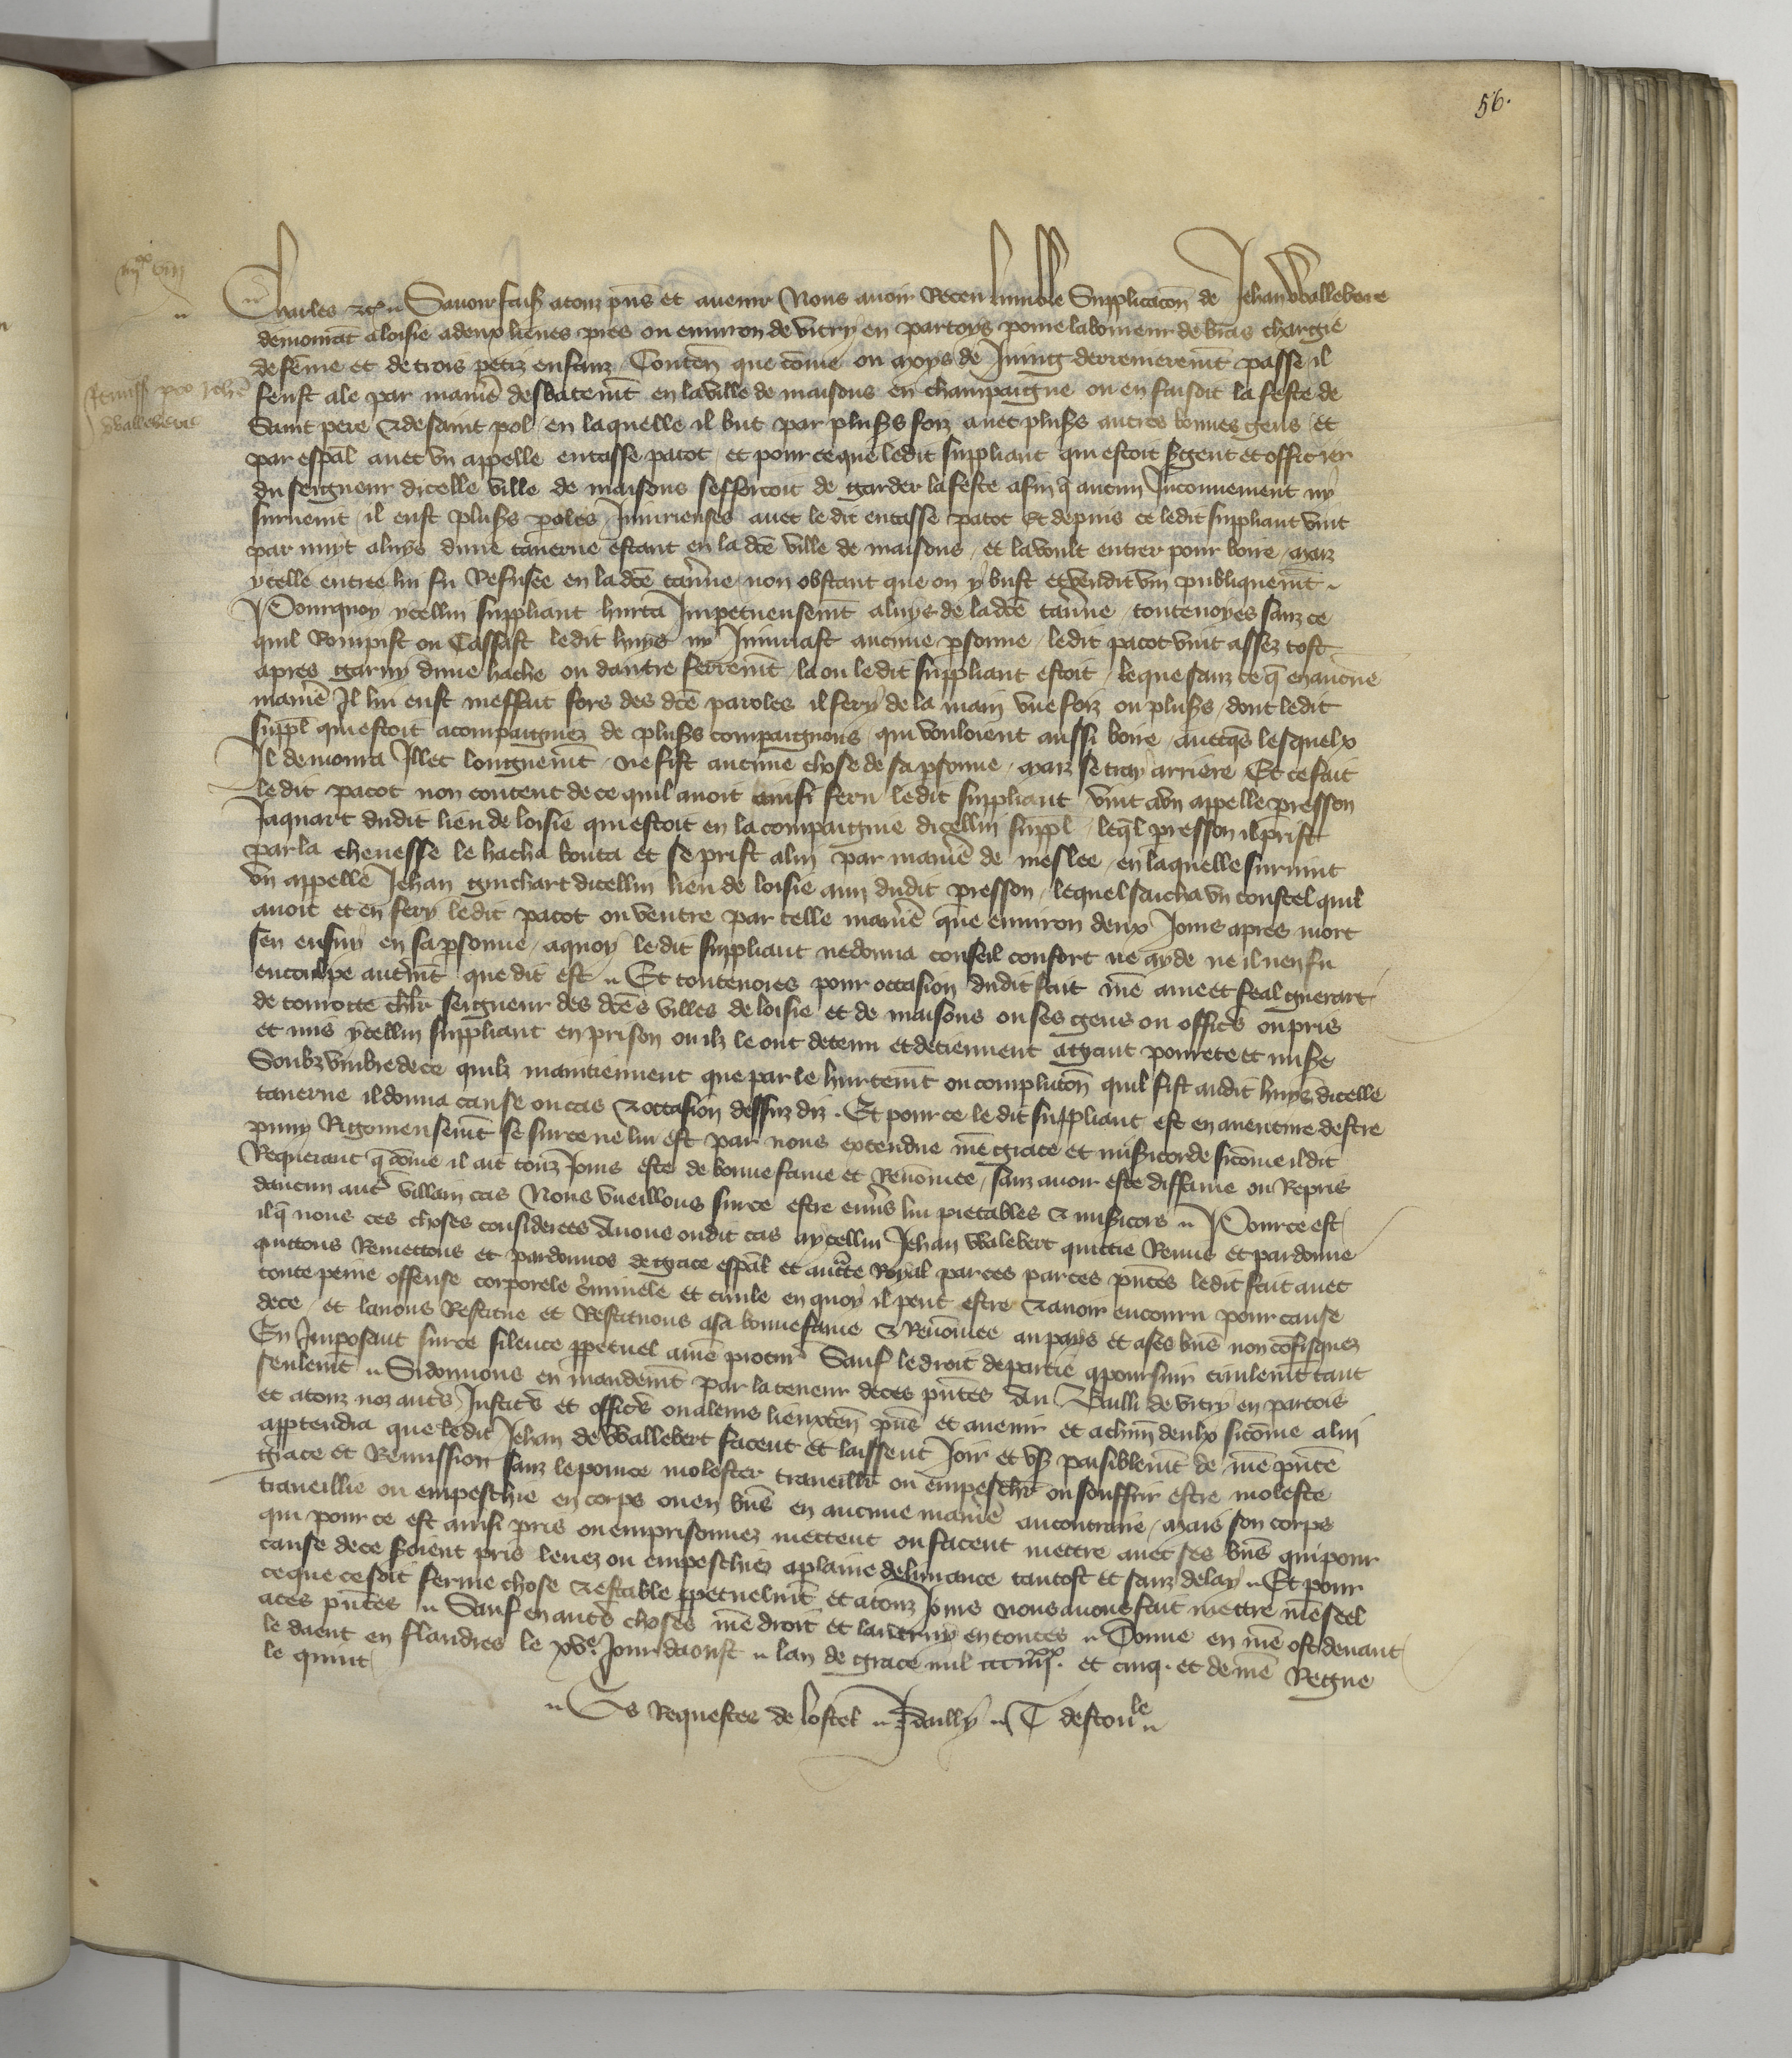 56.
iiijxx viij
Charles etc. Savoir faisons atouz pns et avenir Nous avoir Receu lumble Supplicacion de Jehan Wallebert
demourāt aloisie adeux lieues pres ou environ de vitry en partoys povre laboureur de bras chargie
de feme et de trois petiz enfanz Conten que cōme ou moys de Juing derrenierem̄t passe il
feust ale par manie desbatem̄t en laville de maisons en champaigne ou en faisoit la feste de
Remiss pro Johē
Walleberti
Saint pere & de saint pol en laquelle il but par plus̄s foiz avec plus̄s autres bonnes gens et
par esp̄al avec un appelle encasse pacot et pour ce que ledit suppliant qui estoit s̄gent et officier
du seigneur dicelle ville de maisons sefforcoit de garder lafeste afin q̄ aucun Inconvenient ny
survenit il eust plus̄s poles Injurieuses avec ledit encasse pacot Et depuis ce ledit suppliant vint
par nuyt aluys dune taverne estant en la dc̄e ville de maisons et lavoult entrer pour boire maiz
ycelle entree lui fu Refusee en la dc̄e tav̄ne non obstant que on y bust et vendit vin publiquem̄t
Pourquoy ycellui suppliant hurta Impetueusem̄t aluys de la dc̄e tav̄ne toutevoyes sanz ce
quil Rompist ou Cassast ledit huys ny Injuriast aucune p̄sonne ledit pacot vint assez tost
apres garny dune hache ou dautre ferrem̄t la ou ledit suppliant estoit leque sanz ce q̄ en aucune
manie Il lui eust meffait fors des dc̄es paroles il fery de la main une foiz ou plus̄s dont ledit
suppl̄ qui estoit acompaigniez de plus̄s compaignons qui vouloient aussi boire avecqs̄ lesquelx
Il demoura Illec longuem̄t ne fist aucune chose de sa p̄sonne maiz se tray arriere Et ce fait
ledit pacot non content de ce quil avoit ainsi feru ledit suppliant vint a un appelle presson
Jaquart dudit lieu de loisie qui estoit en la compaignie dicellui suppl̄ leq̄l presson il prist
par la chevesse le hacha bouta et se prist alui par manie de meslee en laquelle survint
un appelle Jehan guichart dicellui lieu de loisie ami dudit presson lequel saicha un coustel quil
avoit et en fery ledit pacot ou ventre par telle manie que environ deux Jours apres mort
sen ensuy en sa p̄sonne aquoy ledit suppliant nedonna conseil confort ne ayde ne il nen fu
encoulpe autrem̄t que dit est Et toutevoies pour occasion dudit fait nr̄e ame et feal guerart
de tourotte chl̄r seigneur des dc̄es villes de loisie et de maisons ou ses gens ou offic̄s ont pris
et mis ycellui suppliant en prison ou ilz le ont detenu et detiennent a grant povrete et mis̄e
Soubz umbre de ce quilz maintiennent que par le hurtem̄t ou complucōn quil fist audit huys dicelle
taverne il donna cause ou cas & occasion dessuz diz Et pour ce ledit suppliant est en aventure destre
puny Rigoureusem̄t se sur ce ne lui est par nous extendue nr̄e grace et mis̄icorde sicōme il dit
Requerant q̄ cōme il ait touz Jours este de bonne fame et Renōmee sanz avoir este diffame ou Repris
daucun autr̄ villain cas Nous vueillons sur ce estre env̄s lui pietables & mis̄icors Pource est
il q̄ nous ces choses considerees Avons oudit cas aycellui Jehan Walebert quittie Remis et pardonne
quittons Remettons et pardonnos de grace esp̄al et auctc̄te Royal par ces par ces pn̄tes ledit fait avec
toute peine offense corporele c̄minele et civile en quoy il peut estre & avoir encouru pour cause
de ce et lavons Restitue et Restituons asa bonne fame & Renōmee au pays et a ses biēs non cōfisquez
En Imposant sur ce silence p̄petuel a nr̄e procur̄ Sauf le droit departie apoursuir civilem̄t tant
seulem̄t Si donnons en mandem̄t par la teneur de ces pn̄tes Au Bailli de vitry en partois
et atouz noz autr̄s Justic̄s et offic̄s ou aleurs lieuxten̄ pn̄s et avenir et achūn deulx sicōme alui
appartendra que ledit Jehan de Wallebert facent et laissent Joir et us̄ paisiblem̄t de nr̄e pn̄te
grace et Remission sanz le povoir molester traveillr̄ ou empeschr̄ ou souffrir estre moleste
traveillie ou empeschie en corps ou en biēs en aucune manie aucontraire mais son corps
qui pour ce est ainsi pris ou emprisonnez mettent ou facent mettre avec ses biēs qui pour
cause de ce seroient pris levez ou empeschiez aplaine delivrance tantost et sanz delay Et pour
ce que ce soit ferme chose & estable p̄petuelm̄t et atouz Jours nous avons fait mettre nr̄e seel
aces pn̄tes Sauf en autr̄s choses nr̄e droit et lautruy en toutes Donne en nr̄e ost devant
le daent en flandres le xve. Jour daoust lan de grace mil ccciiijxx. et cinq. et de nr̄e Regne
le quint
Es Requestes de lostel J dailly T destoule